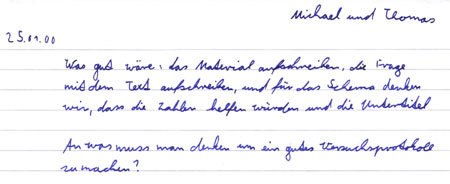 Michael und Thomas
25.01.00
Was gut wäre: das Material aufschreiben, die Frage
mit dem Text aufschreiben, und für das Schema denken
wir, dass die Zahlen helfen würden und die Untertitel
An was muss man denken um ein gutes Versuchsprotokoll
zu machen?